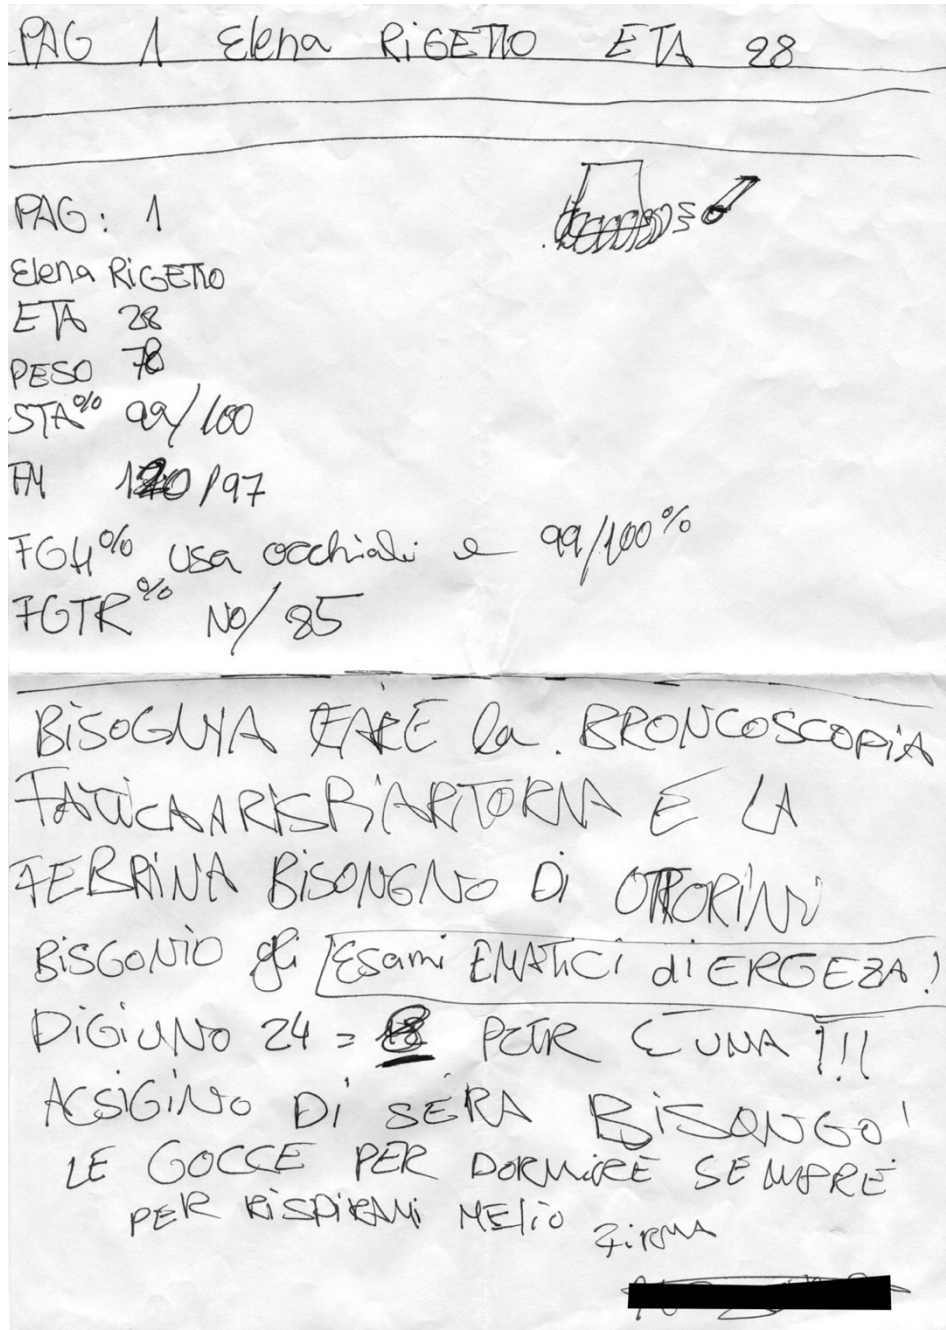 PAG 1 Elena RIGETTO ETA 28
PAG: 1
Elena RIGETTO
ETA 28
PESO 78
STA% 99/100
120/97
FGH% usa occhiali e 99/100%
FGTR% NO/85
BISOGNIA FARE la. BRONCOSCOPIA
FATICA A RISPIARTORNA E LA
FEBRINA BISONGNO DI OTTORINO
BISGONIO gli Esami EMATICI di ERGEZA!
DIGIUNO 24 = PER CUNA !!!
ASSIGINO DI SERA BISONGO!
LE GOCCE PER DORMIRE SEMPRE
PER RISPIRAMI MEliO
FIRMA